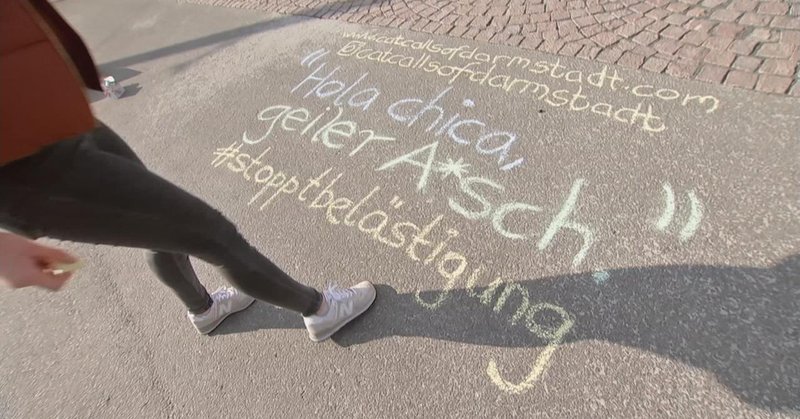 www.catcallsofdarmstadt.com
@catcallsofdarmstadt
"Hola chica,
geiler A*sch."
#stopptbelästigung
N